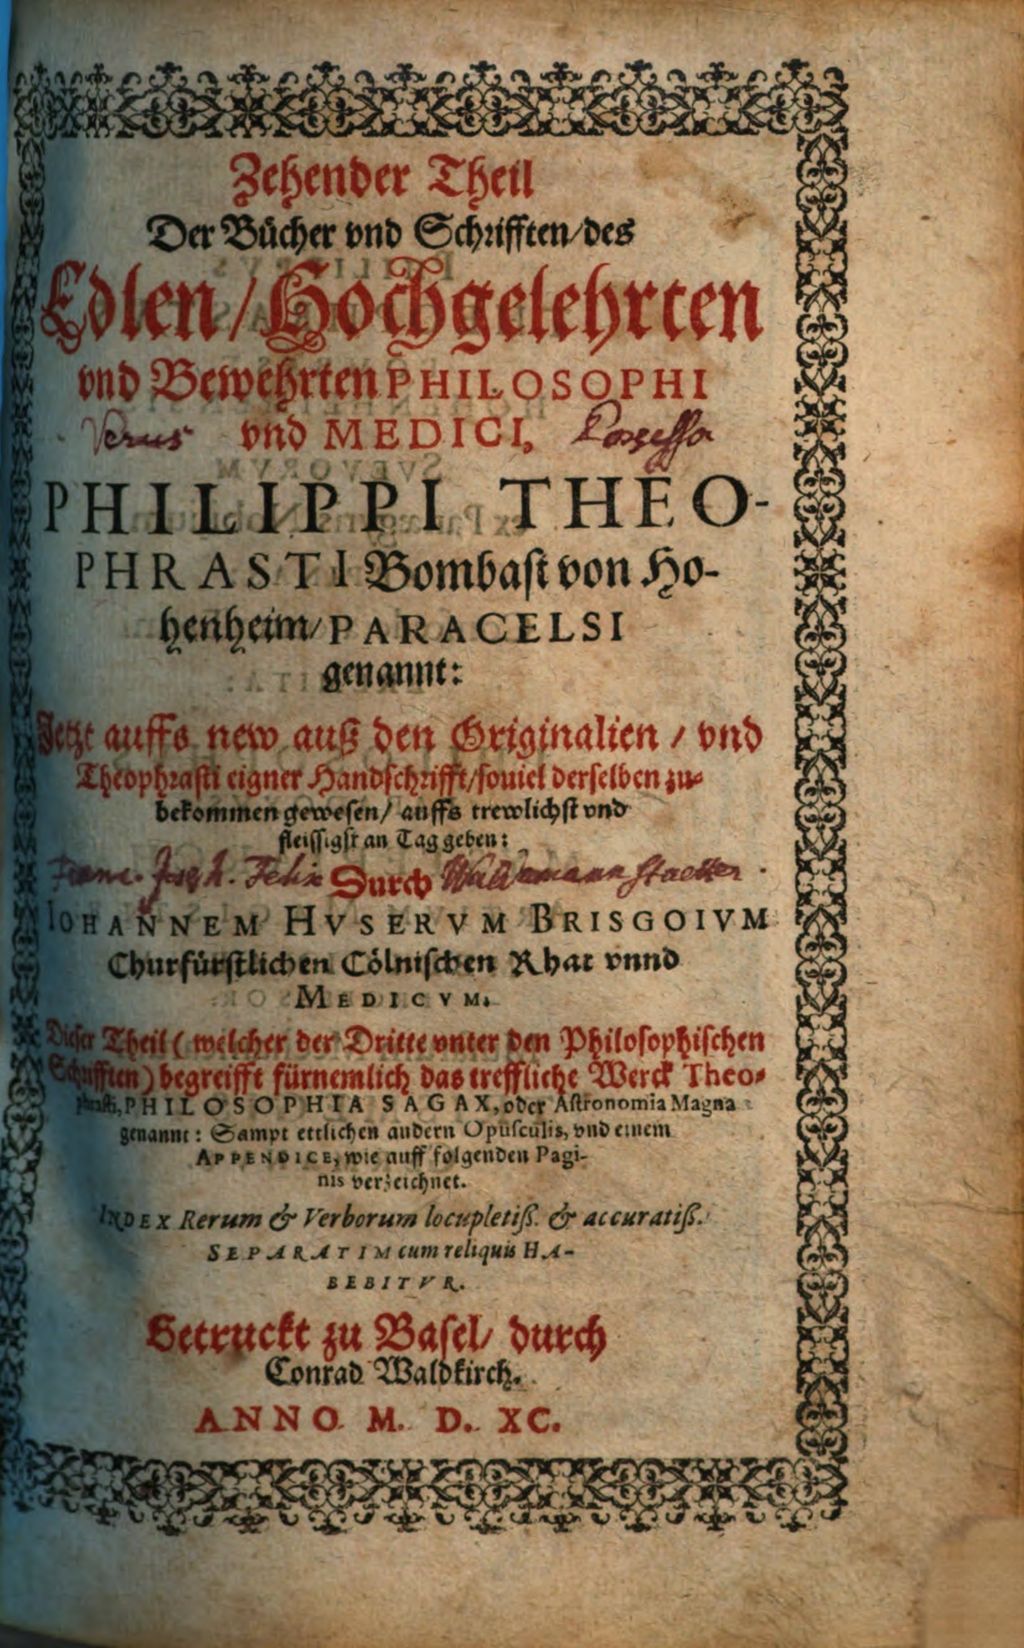 Zehender Theil
Der Bücher vnd Schrifften/des
Edlen/Hochgelehrten
vnd Bewehrten PHILOSOPHI
Verus vnd MEDICI, Possessor
PHILIPPI THEO-
PHRASTI Bombast von Ho-
henheim/PARACELSI
genannt:
Jetzt auffs new auß den Originalien / vnd
Theophrasti eigner Handschrifft/souiel derselben zu-
bekommen gewesen/ auffs trewlichst vnd
fleissigst an Tag geben:
Franc. Joseph. Felix Durch
IOHANNEM HVSERVM BRISGOIVM
Churfürstlichen Cölnischen Rhat vnnd
MEDICVM.
Dieser Theil (welcher der Dritte vnter den Philosophischen
Schrifften) begreifft fürnemlich das treffliche Werck Theo-
phrasti, PHILOSOPHIA SAGAX, oder Astronomia Magna
genannt: Sampt ettlichen andern Opusculis, vnd einem
APPENDICE, wie auff folgenden Pagi-
nis verzeichnet.
INDEX Rerum & Verborum locupletiß. & accuratiß.
SEPARATIM cum reliquis HA-
BEBITVR.
Getruckt zu Basel/ durch
Conrad Waldkirch.
ANNO M. D. XC.